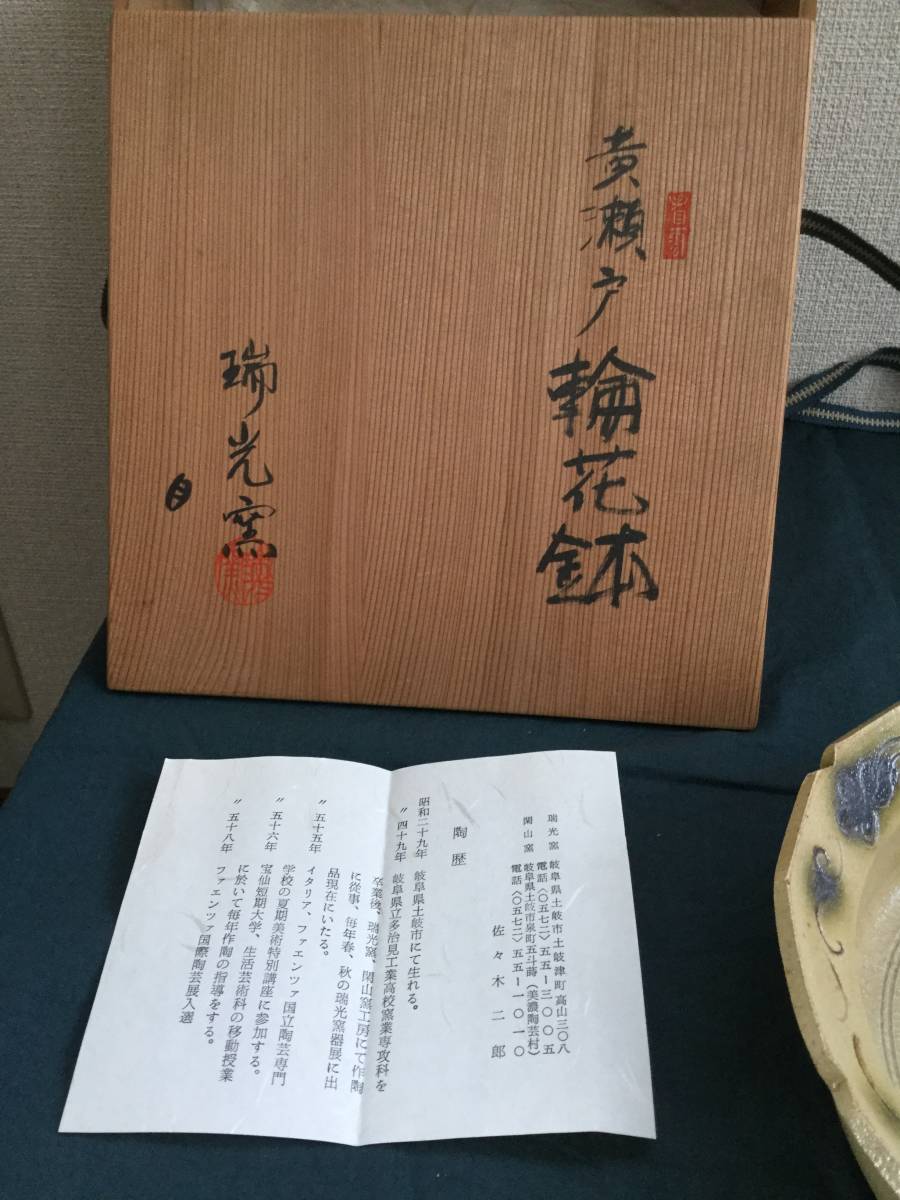 黄瀬戸輪花鉢
瑞光窯
瑞光窯 岐阜県土岐市土岐津町高山三〇八
電話〈〇五七二〉五五ー三〇〇五
閑山窯 岐阜県土岐市泉町五斗蒔(美濃陶芸村)
電話〈〇五七二〉五五ー一〇一〇
佐々木二郎
陶歴
昭和二十九年 岐阜県土岐市にて生れる。
〃四十九年 岐阜県立多治見工業高校窯業専攻科を
卒業後、瑞光窯、閑山窯工房にて作陶
に従事、毎年春、秋の瑞光窯器展に出
品現在にいたる。
〃五十五年 イタリア、ファエンツァ国立陶芸専門
学校の夏期美術特別講座に参加する。
〃五十六年 宝仙短期大学、生活芸術科の移動授業
に於いて毎年作陶の指導をする。
〃五十八年 ファエンツァ国際陶芸展入選